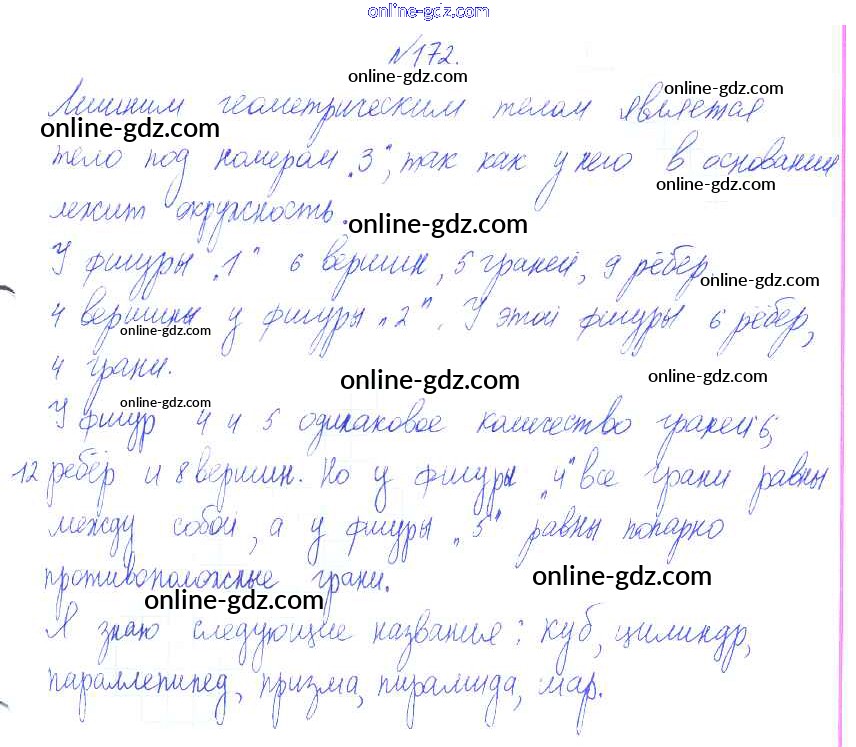 online-gdz.com
№172.
online-gdz.com
online-gdz.com
Лишним геометрическим телом является
online-gdz.com
тело под номером „3", так как у него в основании
online-gdz.com
лежит окружность.
online-gdz.com
У фигуры „1" 6 вершин, 5 граней, 9 рёбер,
online-gdz.com
4 вершины у фигуры „2". У этой фигуры 6 рёбер,
online-gdz.com
4 грани.
online-gdz.com
online-gdz.com
online-gdz.com
У фигур 4 и 5 одинаковое количество граней 6,
12 рёбер и 8 вершин. Но у фигуры „4" все грани равны
между собой, а у фигуры „5" равны попарно
противоположные грани.
online-gdz.com
online-gdz.com
Я знаю следующие названия: куб, цилиндр,
параллепипед, призма, пирамида, шар.